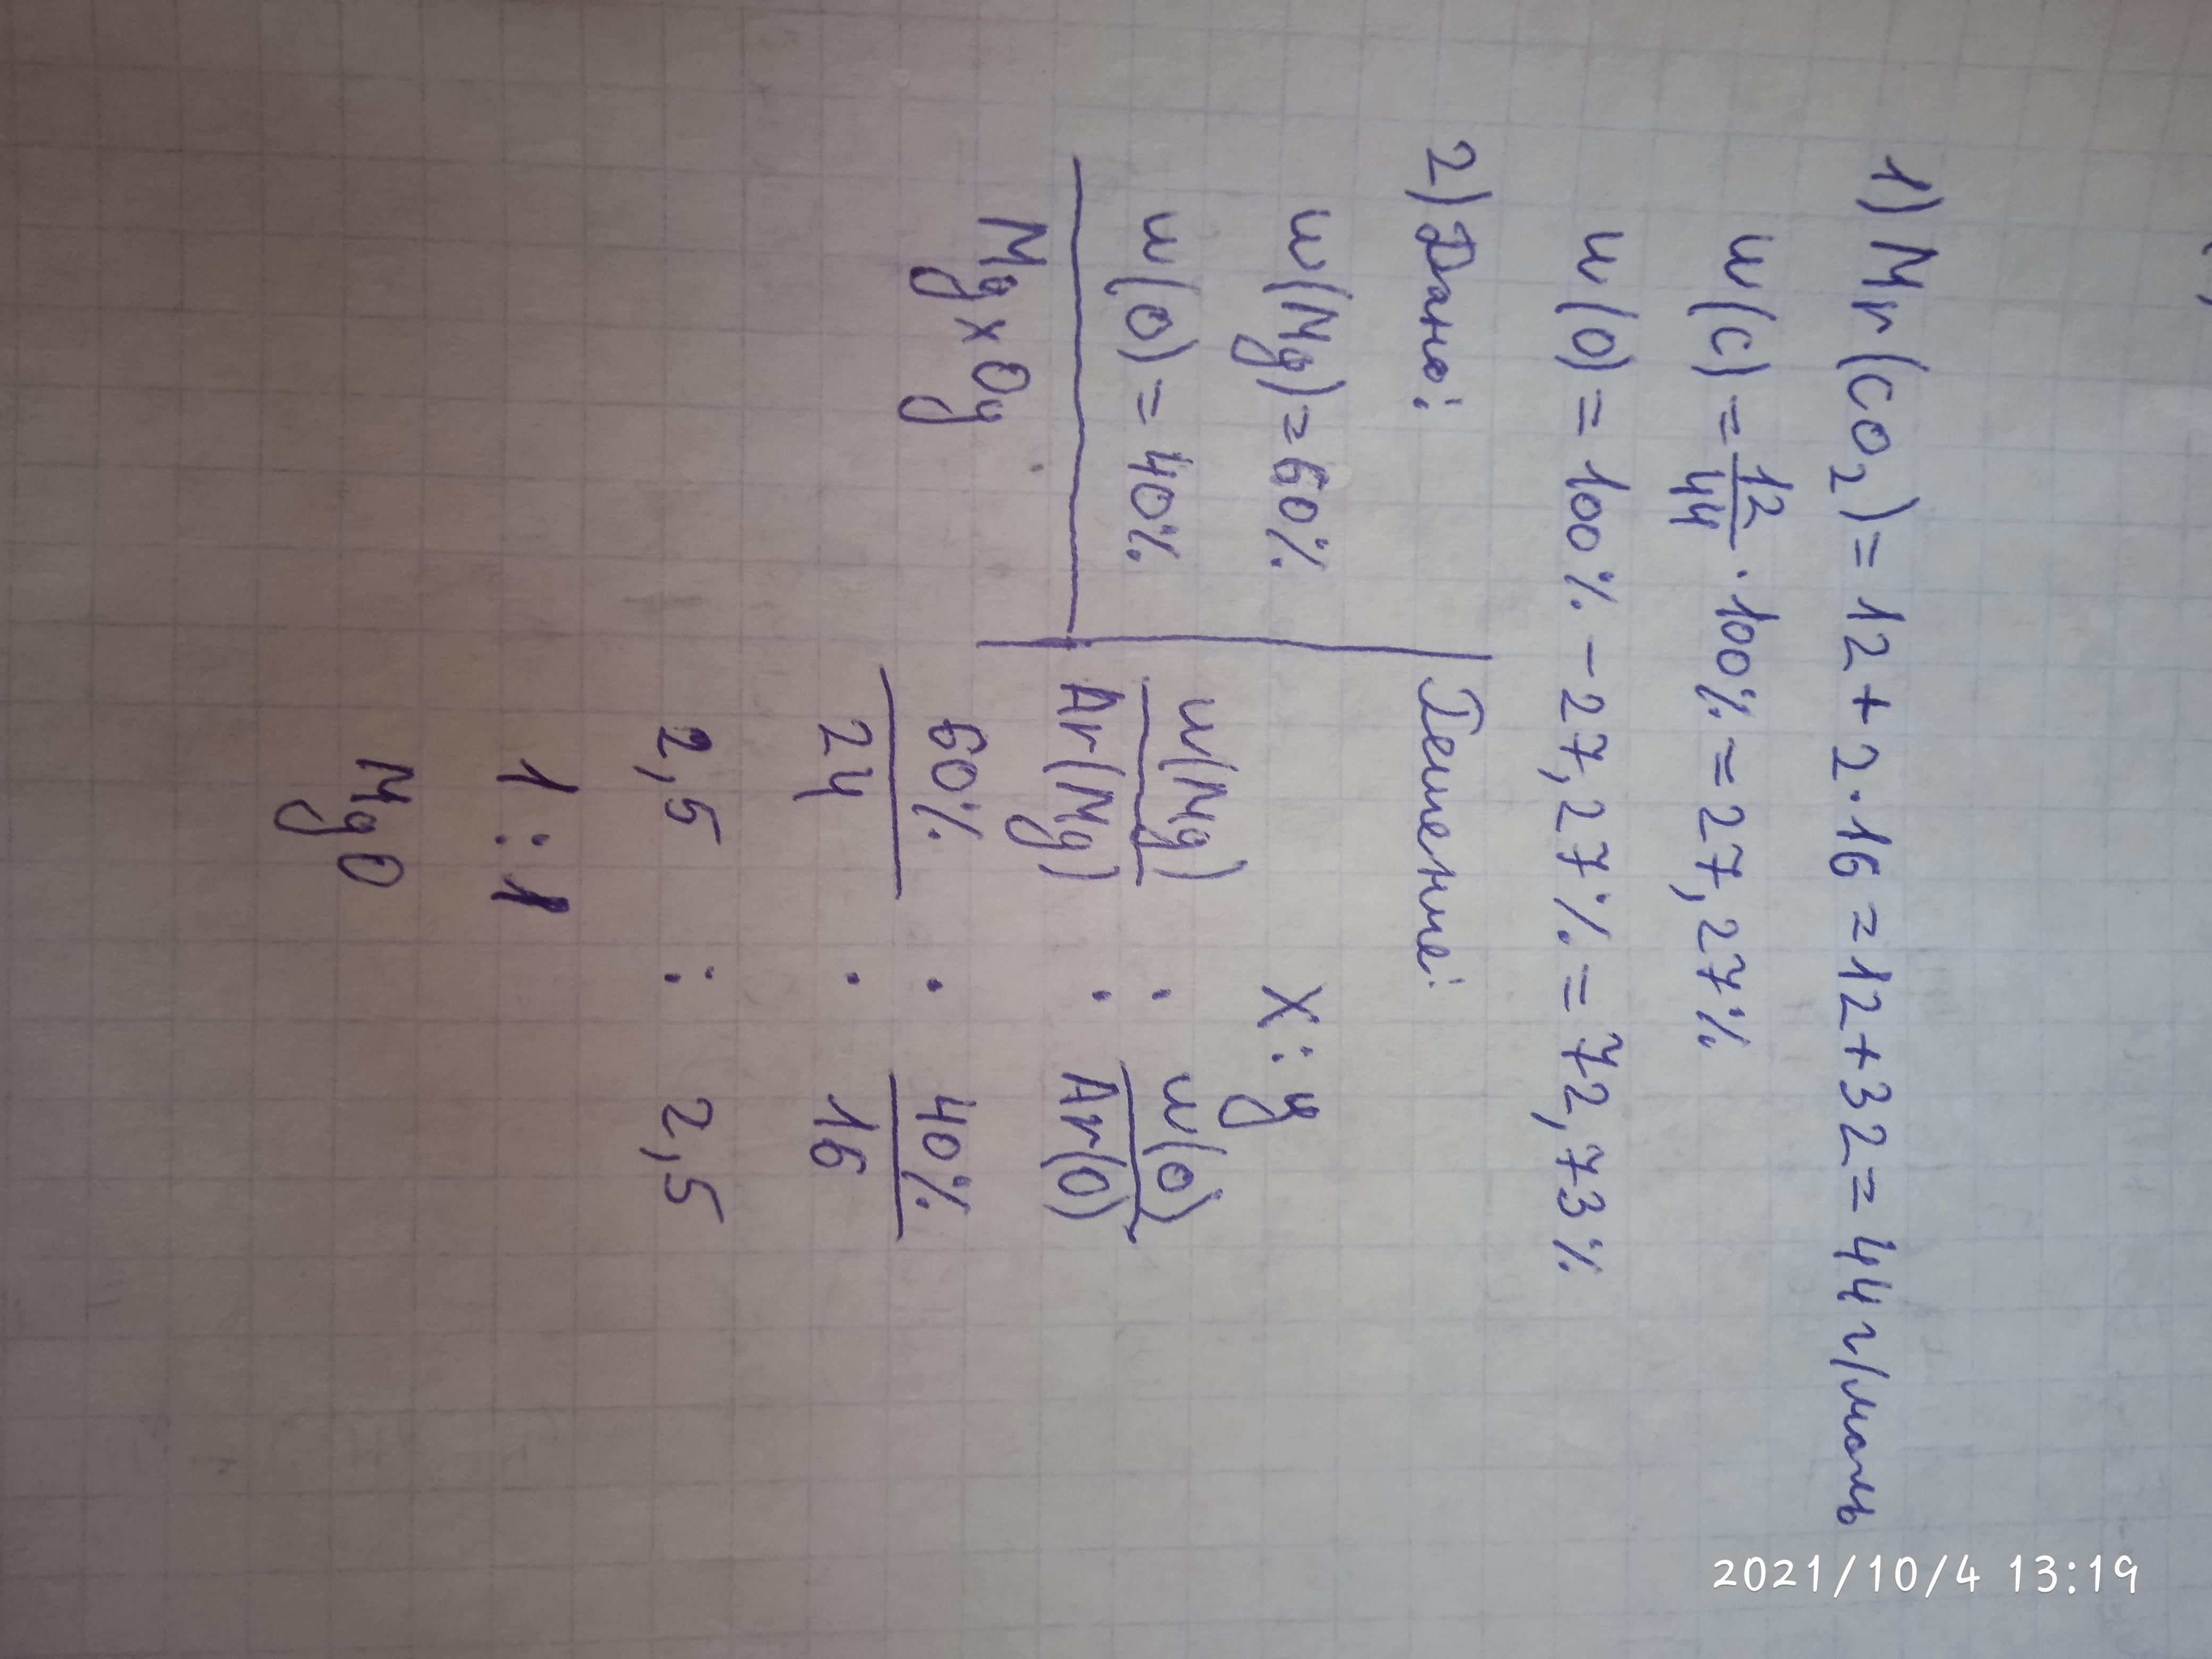 1) Mr(CO₂) = 12 + 2·16 = 12 + 32 = 44 г/моль
w(C) = 12/44 · 100% = 27,27%
w(O) = 100% - 27,27% = 72,73%
2) Дано: Решение:
w(Mg) = 60%
w(O) = 40%
MgxOy
x : y
w(Mg)/Ar(Mg) : w(O)/Ar(O)
60%/24 : 40%/16
2,5 : 2,5
1 : 1
MgO
2021/10/4 13:19